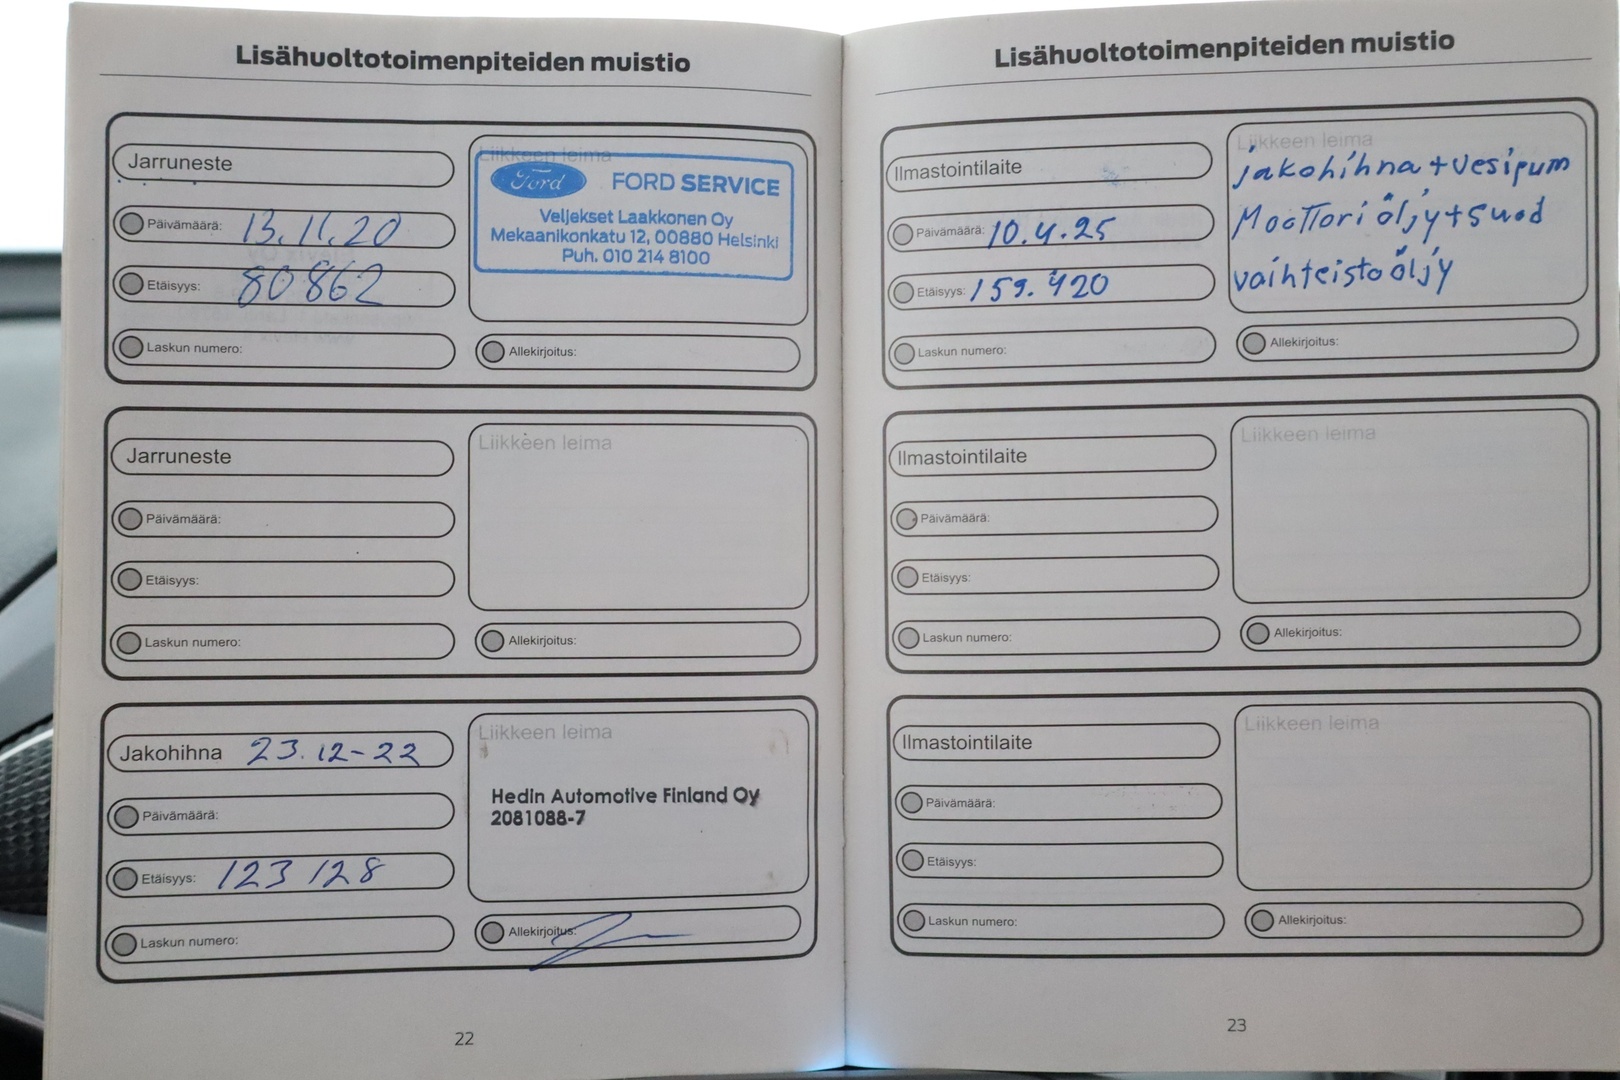 Lisähuoltotoimenpiteiden muistio
Jarruneste
Päivämäärä: 13.11.20
Etäisyys: 80 862
Laskun numero:
Liikkeen leima
Ford FORD SERVICE
Veljekset Laakkonen Oy
Mekaanikonkatu 12, 00880 Helsinki
Puh. 010 214 8100
Allekirjoitus:
Jarruneste
Päivämäärä:
Etäisyys:
Laskun numero:
Liikkeen leima
Allekirjoitus:
Jakohihna 23.12-22
Päivämäärä:
Etäisyys: 123 128
Laskun numero:
Liikkeen leima
Hedin Automotive Finland Oy
2081088-7
Allekirjoitus:
22
Lisähuoltotoimenpiteiden muistio
Ilmastointilaite
Päivämäärä: 10.4.25
Etäisyys: 159.420
Laskun numero:
Liikkeen leima
jakohihna + vesipum
Moottori öljy + suod
vaihteisto öljy
Allekirjoitus:
Ilmastointilaite
Päivämäärä:
Etäisyys:
Laskun numero:
Liikkeen leima
Allekirjoitus:
Ilmastointilaite
Päivämäärä:
Etäisyys:
Laskun numero:
Liikkeen leima
Allekirjoitus:
23